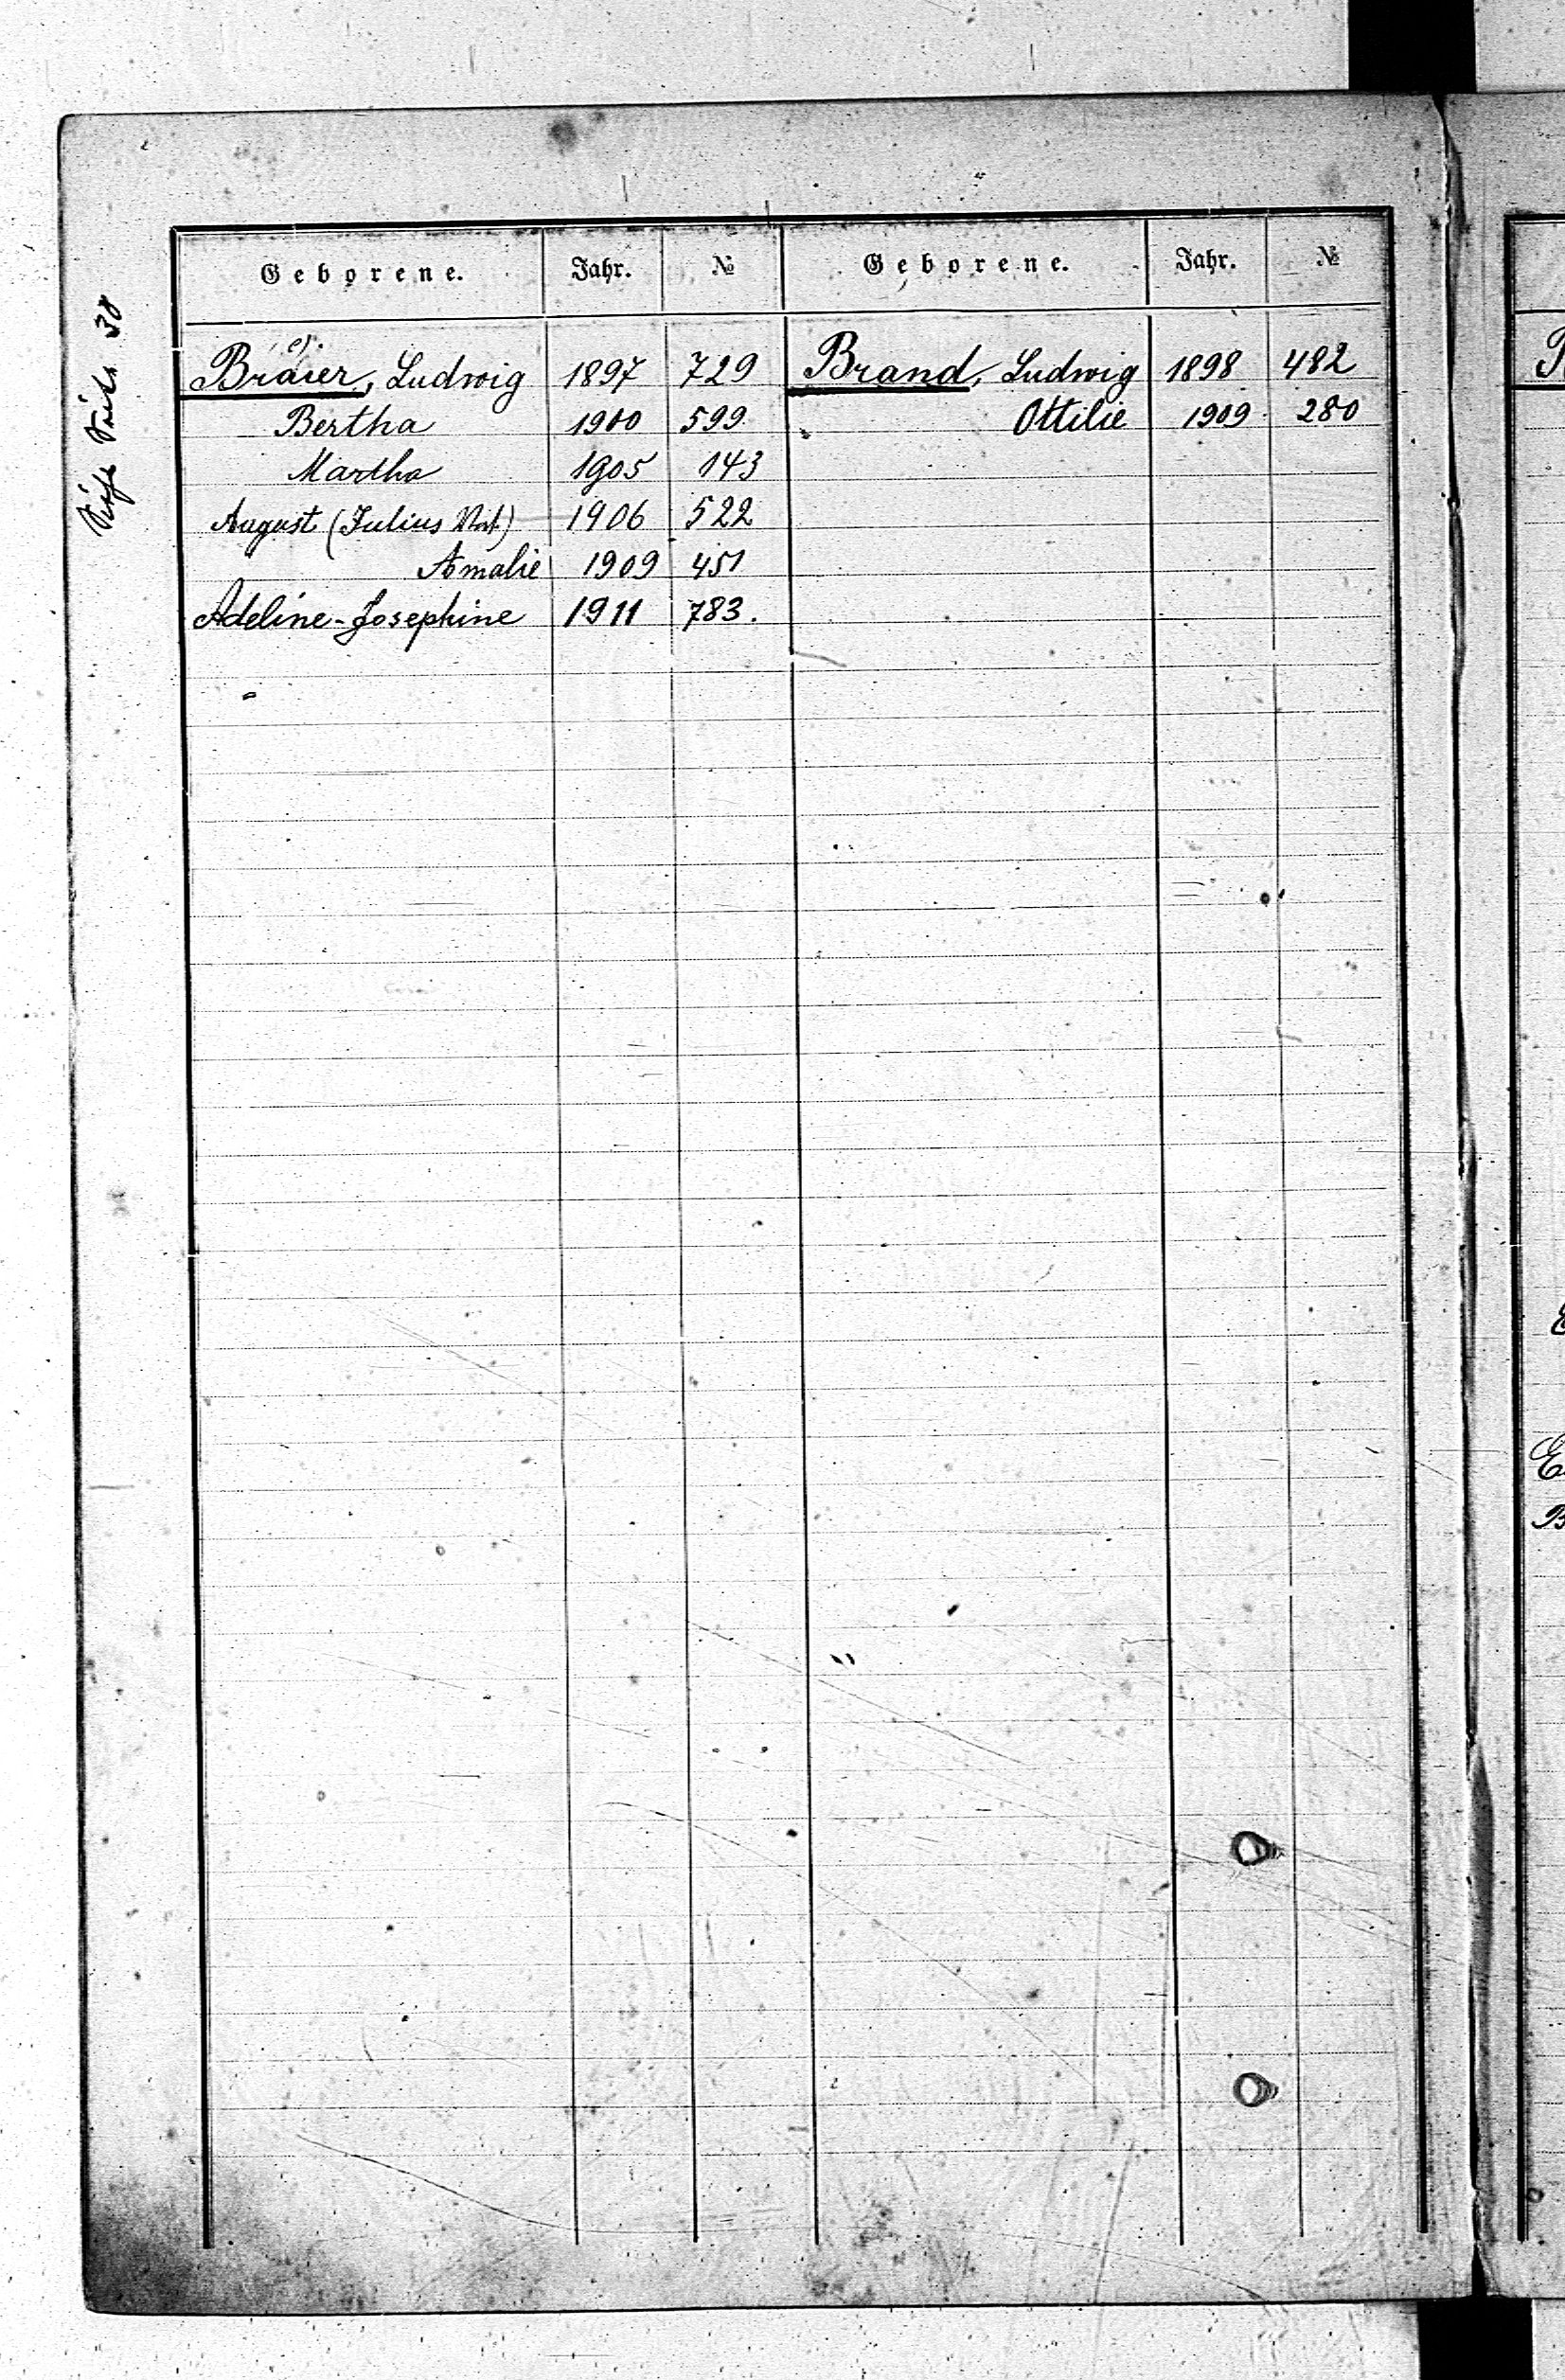 Siehe Seite 38
Geborene. Jahr. № Geborene. Jahr. №
Braier, Ludwig 1897 729 Brand, Ludwig 1898 482
Bertha 1900 599 Ottilie 1909 280
Martha 1905 143
August (Julius 1906 522
Amalie 1909 451
Adeline-Josephine 1911 783.